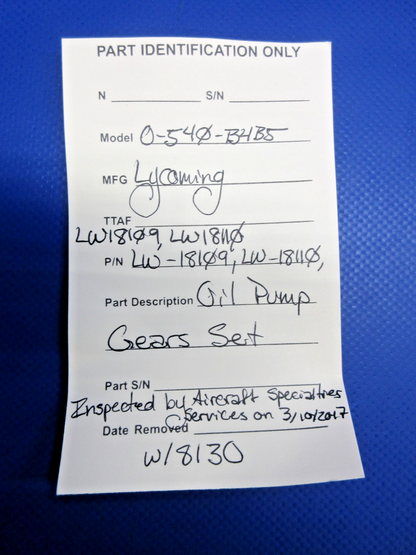 PART IDENTIFICATION ONLY
N S/N
Model O-54Ø-B4B5
MFG Lycoming
TTAF
LW181Ø9, LW1811Ø
P/N LW-181Ø9, LW-1811Ø,
Part Description Oil Pump
Gears Set
Part S/N
Inspected by Aircraft Specialties
Services on 3/10/2017
Date Removed
W/8130